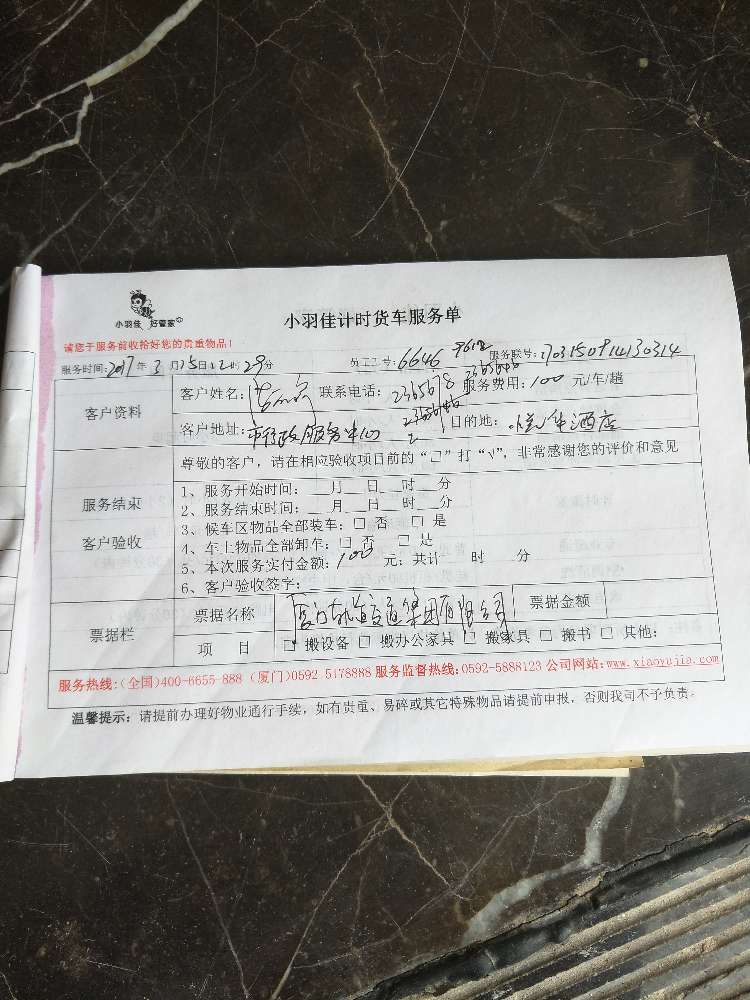 小羽佳 好管家
小羽佳计时货车服务单
请您于服务前收拾好您的贵重物品！
服务时间：2017年3月15日12时29分 员工工号：6646 9612 服务联号：1703150914130314
客户资料
客户姓名： 联系电话：2365678 服务费用：100元/车/趟
客户地址：市行政服务中心 目的地：悦华酒店
尊敬的客户，请在相应验收项目前的“□”打“√”，非常感谢您的评价和意见
服务结束
客户验收
1、服务开始时间：__月__日__时__分
2、服务结束时间：__月__日__时__分
3、候车区物品全部装车：□ 否 □ 是
4、车上物品全部卸车：□ 否 □ 是
5、本次服务实付金额：100元；共计 时 分
6、客户验收签字：
票据栏
票据名称 厦门轨道交通集团有限公司 票据金额
项 目 □ 搬设备 □ 搬办公家具 □ 搬家具 □ 搬书 □ 其他：
服务热线：（全国）400-6655-888（厦门）0592 5178888 服务监督热线：0592-5888123 公司网站：www.xiaoyujia.com
温馨提示：请提前办理好物业通行手续，如有贵重、易碎或其它特殊物品请提前申报，否则我司不予负责。